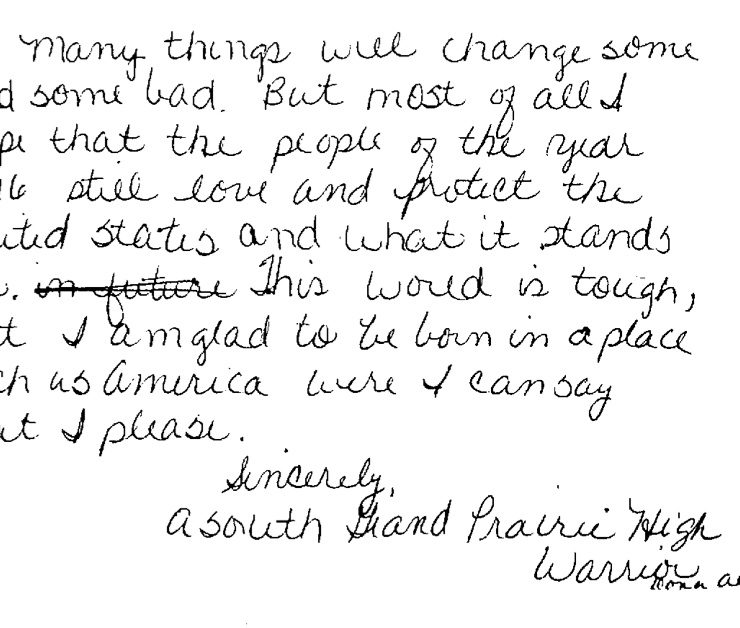 Many things will change some
d some bad. But most of all I
pe that the people of the year
16 still love and protect the
ited states and what it stands
. in future This world is tough,
t I am glad to be born in a place
ch as America were I can say
at I please.
Sincerely,
A south Grand Prairie High
Warrior